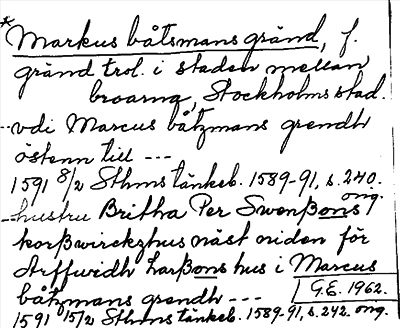 * Markus båtsmans gränd, f.
gränd trol. i staden mellan
broarna, Stockholms stad.
--- vdi Marcus båtzmans grendh
östenn till ---
1591 8/2 Sthms tänkeb. 1589-91, s. 240.
orig.
--- hustru Britha Per Swenßons
korßwirckzhus näst niden för
Arffwidh Larßons hus i Marcus
båtzmans grendh ---
G.E. 1962.
1591 15/2 Sthms tänkeb. 1589-91, s. 242. orig.